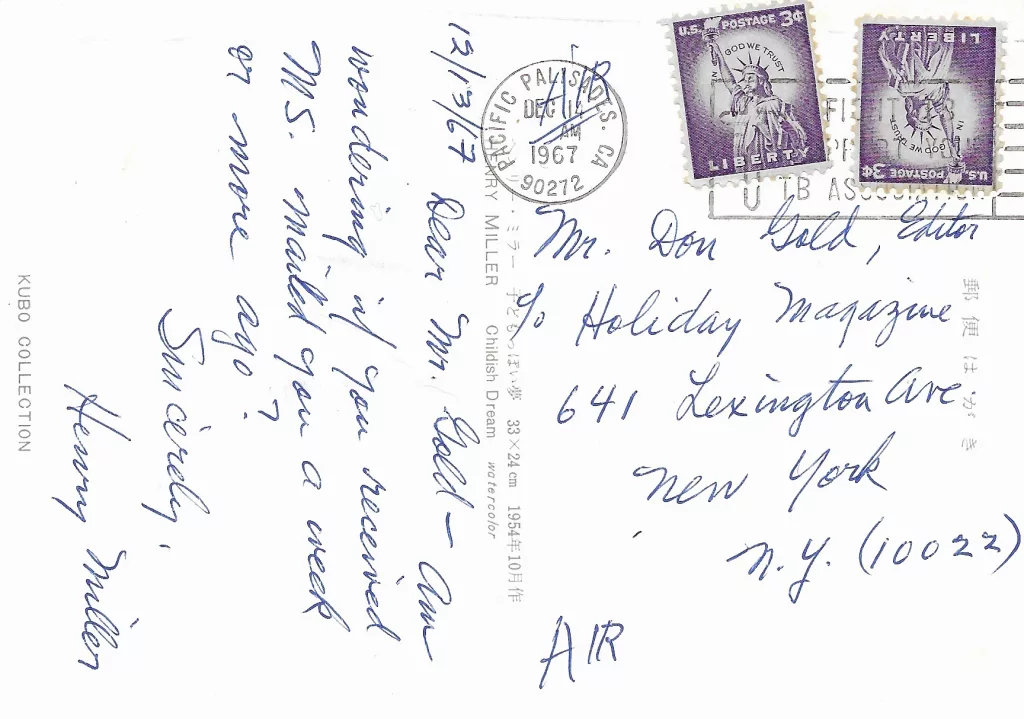 12/13/67 Dear Mr. Gold – Am
wondering if you received
MS. mailed you a week
or more ago?
Sincerely,
Henry Miller
KUBO COLLECTION
HENRY MILLER Childish Dream watercolor
・ミラー 子どもっぽい夢 33×24cm 1954年10月作
AIR
PACIFIC PALISADES, CA
DEC 14
AM
1967
90272
U.S. POSTAGE 3¢
IN GOD WE TRUST
LIBERTY
U.S. POSTAGE 3¢
IN GOD WE TRUST
LIBERTY
TB ASSOCIATION
郵便はがき
Mr. Don Gold, Editor
c/o Holiday Magazine
641 Lexington Ave
New York
N.Y. (10022)
AIR